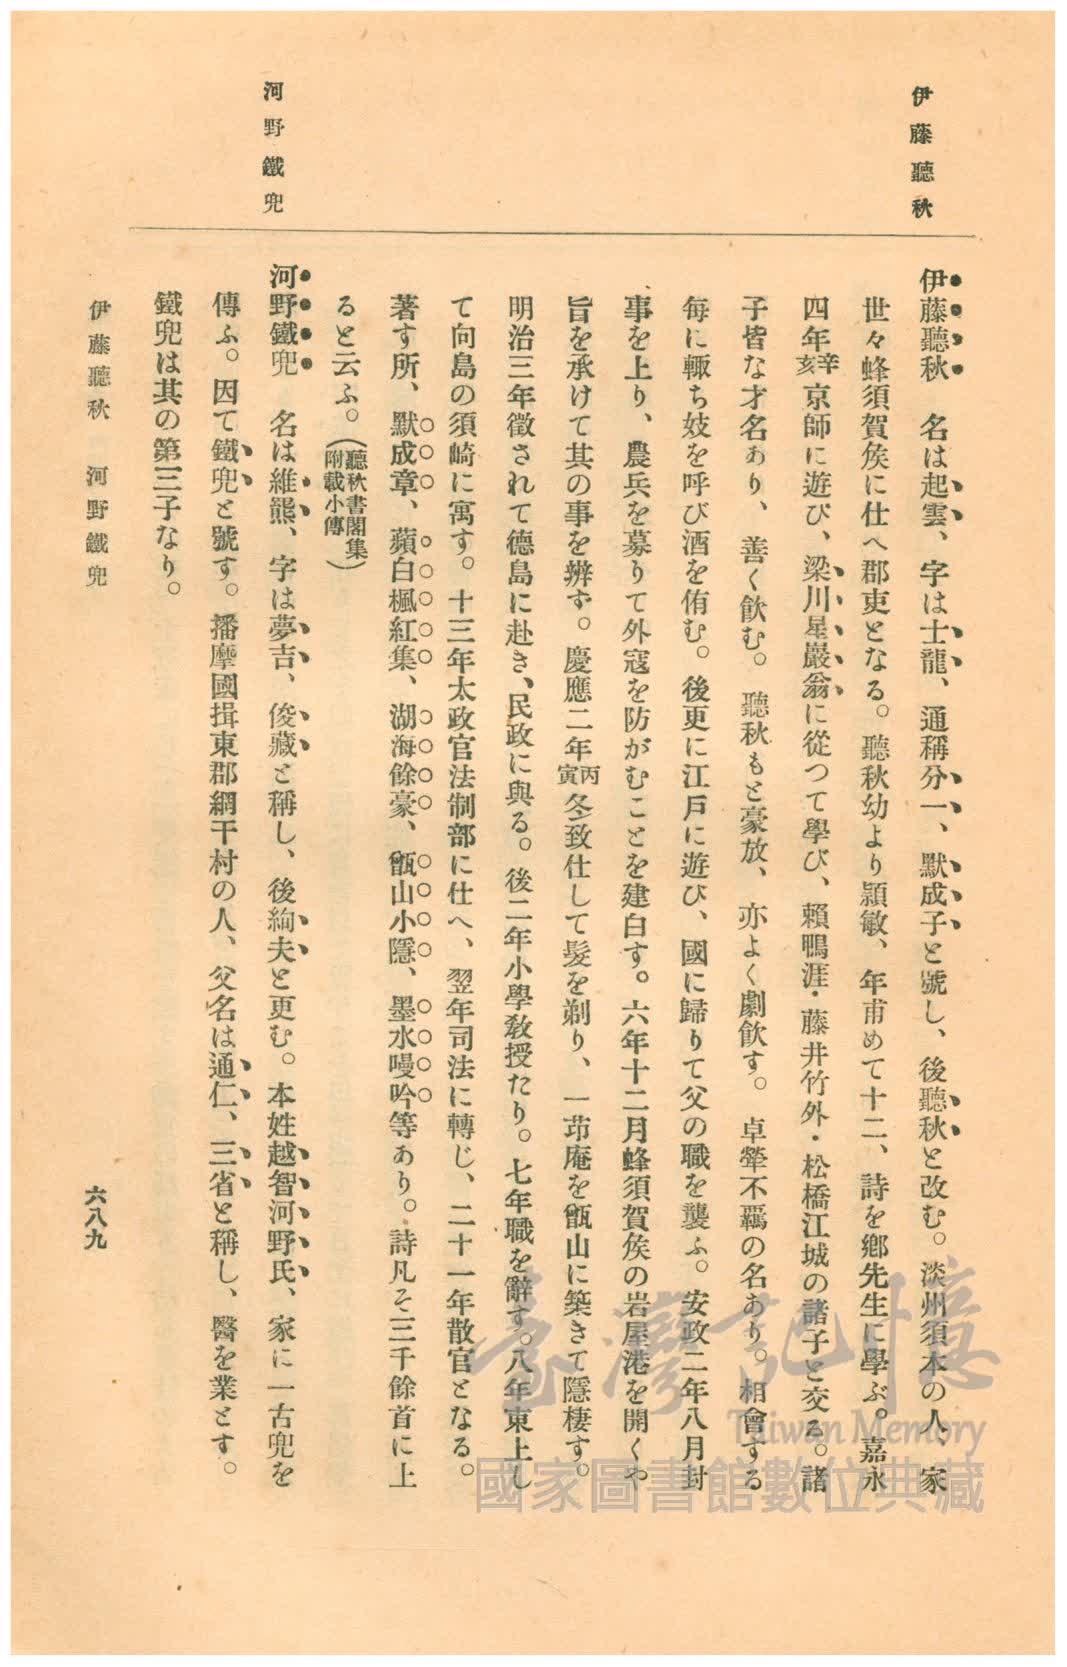 伊藤聽秋
河野鐵兜
伊藤聽秋　名は起雲、字は士龍、通稱分一、默成子と號し、後聽秋と改む。淡州須本の人、家
世々蜂須賀侯に仕へ郡吏となる。聽秋幼より穎敏、年甫めて十二、詩を鄕先生に學ぶ。嘉永
四年辛亥京師に遊び、梁川星巖翁に從つて學び、賴鴨涯・藤井竹外・松橋江城の諸子と交る。諸
子皆な才名あり、善く飮む。聽秋もと豪放、亦よく劇飮す。卓犖不羈の名あり。相會する
每に輙ち妓を呼び酒を侑む。後更に江戶に遊び、國に歸りて父の職を襲ふ。安政二年八月封
事を上り、農兵を募りて外寇を防がむことを建白す。六年十二月蜂須賀侯の岩屋港を開くや
旨を承けて其の事を辨ず。慶應二年丙寅冬致仕して髮を剃り、一茆庵を甑山に築きて隱棲す。
明治三年徵されて德島に赴き、民政に與る。後二年小學敎授たり。七年職を辭す。八年東上し
て向島の須崎に寓す。十三年太政官法制部に仕へ、翌年司法に轉じ、二十一年散官となる。
著す所、默成章、蘋白楓紅集、湖海餘豪、甑山小隱、墨水嗳吟等あり。詩凡そ三千餘首に上
ると云ふ。（聽秋書閣集附載小傳）
河野鐵兜　名は維羆、字は夢吉、俊藏と稱し、後絢夫と更む。本姓越智河野氏、家に一古兜を
傳ふ。因て鐵兜と號す。播摩國揖東郡網干村の人、父名は通仁、三省と稱し、醫を業とす。
鐵兜は其の第三子なり。
伊藤聽秋　河野鐵兜
六八九
臺灣記憶
Taiwan Memory
國家圖書館數位典藏